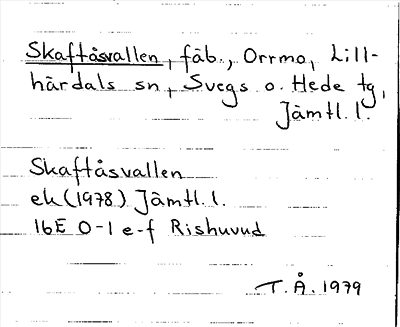 Skaftåsvallen, fäb., Orrmo, Lill-
härdals sn, Svegs o. Hede tg,
Jämtl. l.
Skaftåsvallen
ek (1978) Jämtl. l.
16E 0-1 e-f Rishuvud
T.Å. 1979